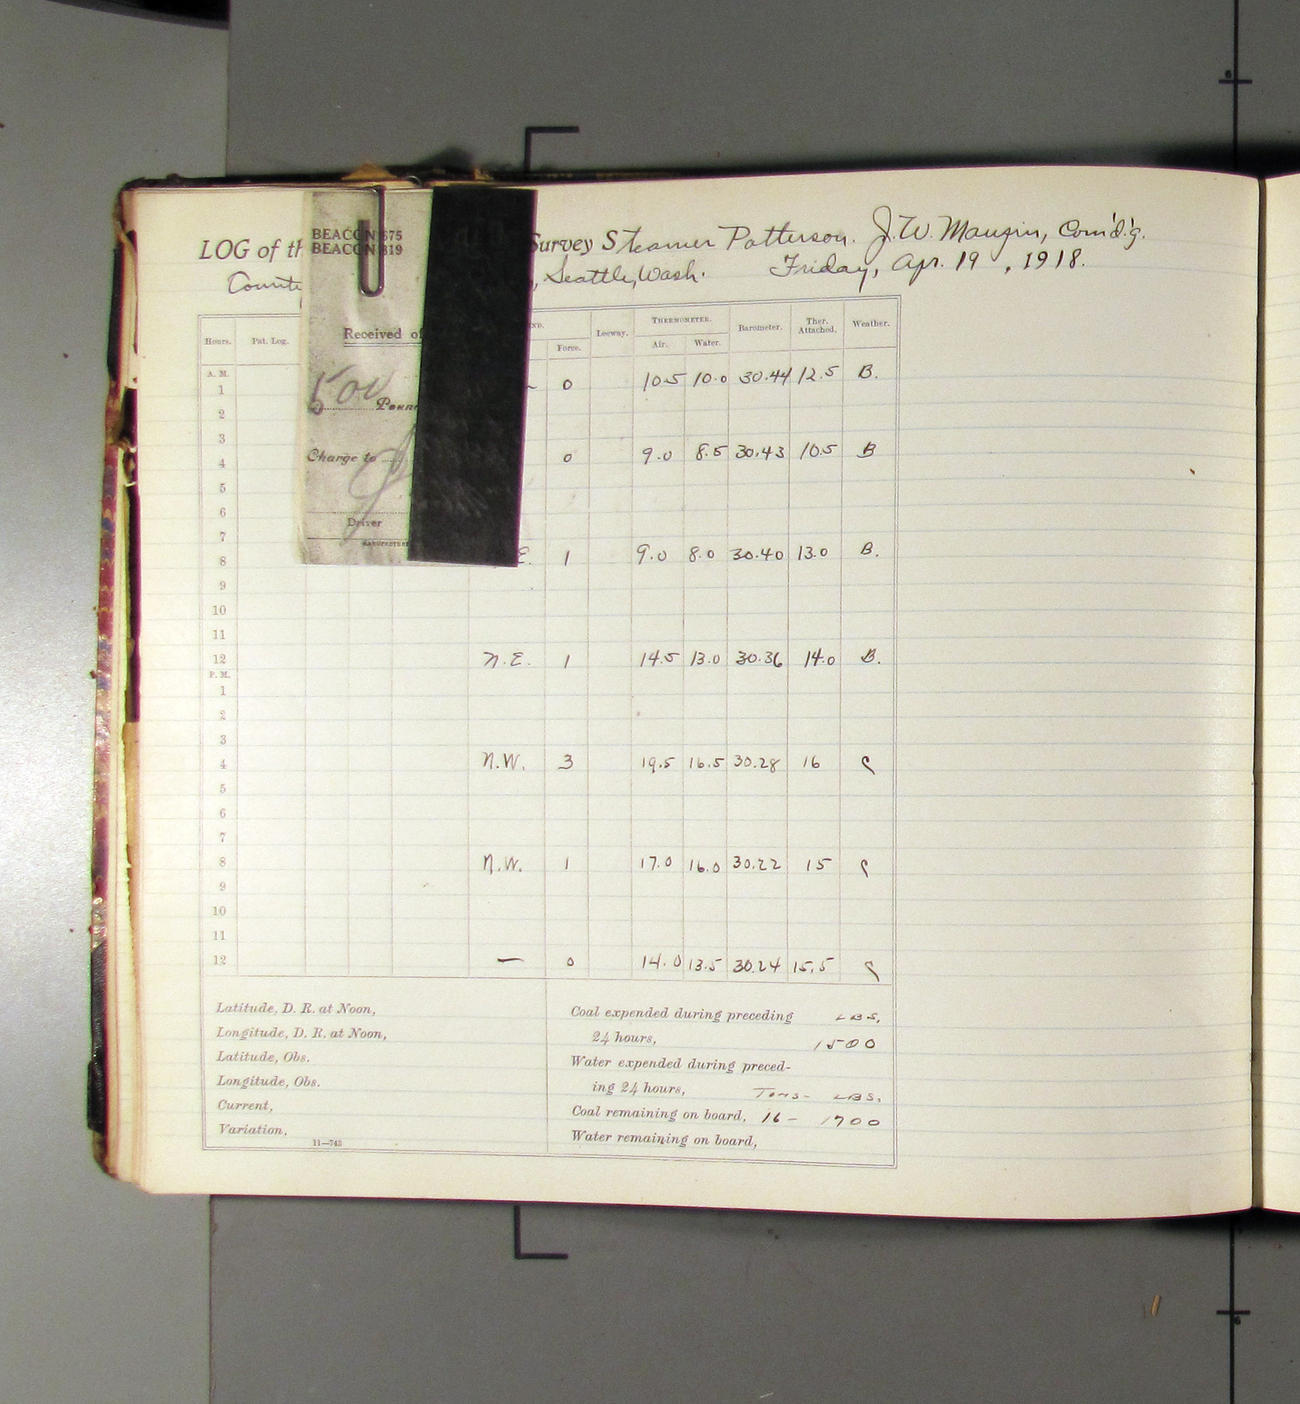 LOG of th Survey Steamer Patterson. J. W. Maupin, Com'd'g.
Seattle, Wash. Friday, Apr. 19, 1918.
BEACON 675
BEACON 319
Received of
500
Charge to
Driver
Hours. Pat. Log. Force. Leeway. THERMOMETER. Air. Water. Barometer. Ther. Attached. Weather.
A. M.
1 0 10.5 10.0 30.44 12.5 B.
2
3
4 0 9.0 8.5 30.43 10.5 B
5
6
7
8 E. 1 9.0 8.0 30.40 13.0 B.
9
10
11
12 N.E. 1 14.5 13.0 30.36 14.0 B.
P. M.
1
2
3
4 N.W. 3 19.5 16.5 30.28 16 C
5
6
7
8 N.W. 1 17.0 16.0 30.22 15 C
9
10
11
12 — 0 14.0 13.5 30.24 15.5 C
Latitude, D. R. at Noon,
Longitude, D. R. at Noon,
Latitude, Obs.
Longitude, Obs.
Current,
Variation,
11—743
Coal expended during preceding LBS.
24 hours, 1500
Water expended during preced-
ing 24 hours, Tons- LBS.
Coal remaining on board, 16 – 1700
Water remaining on board,